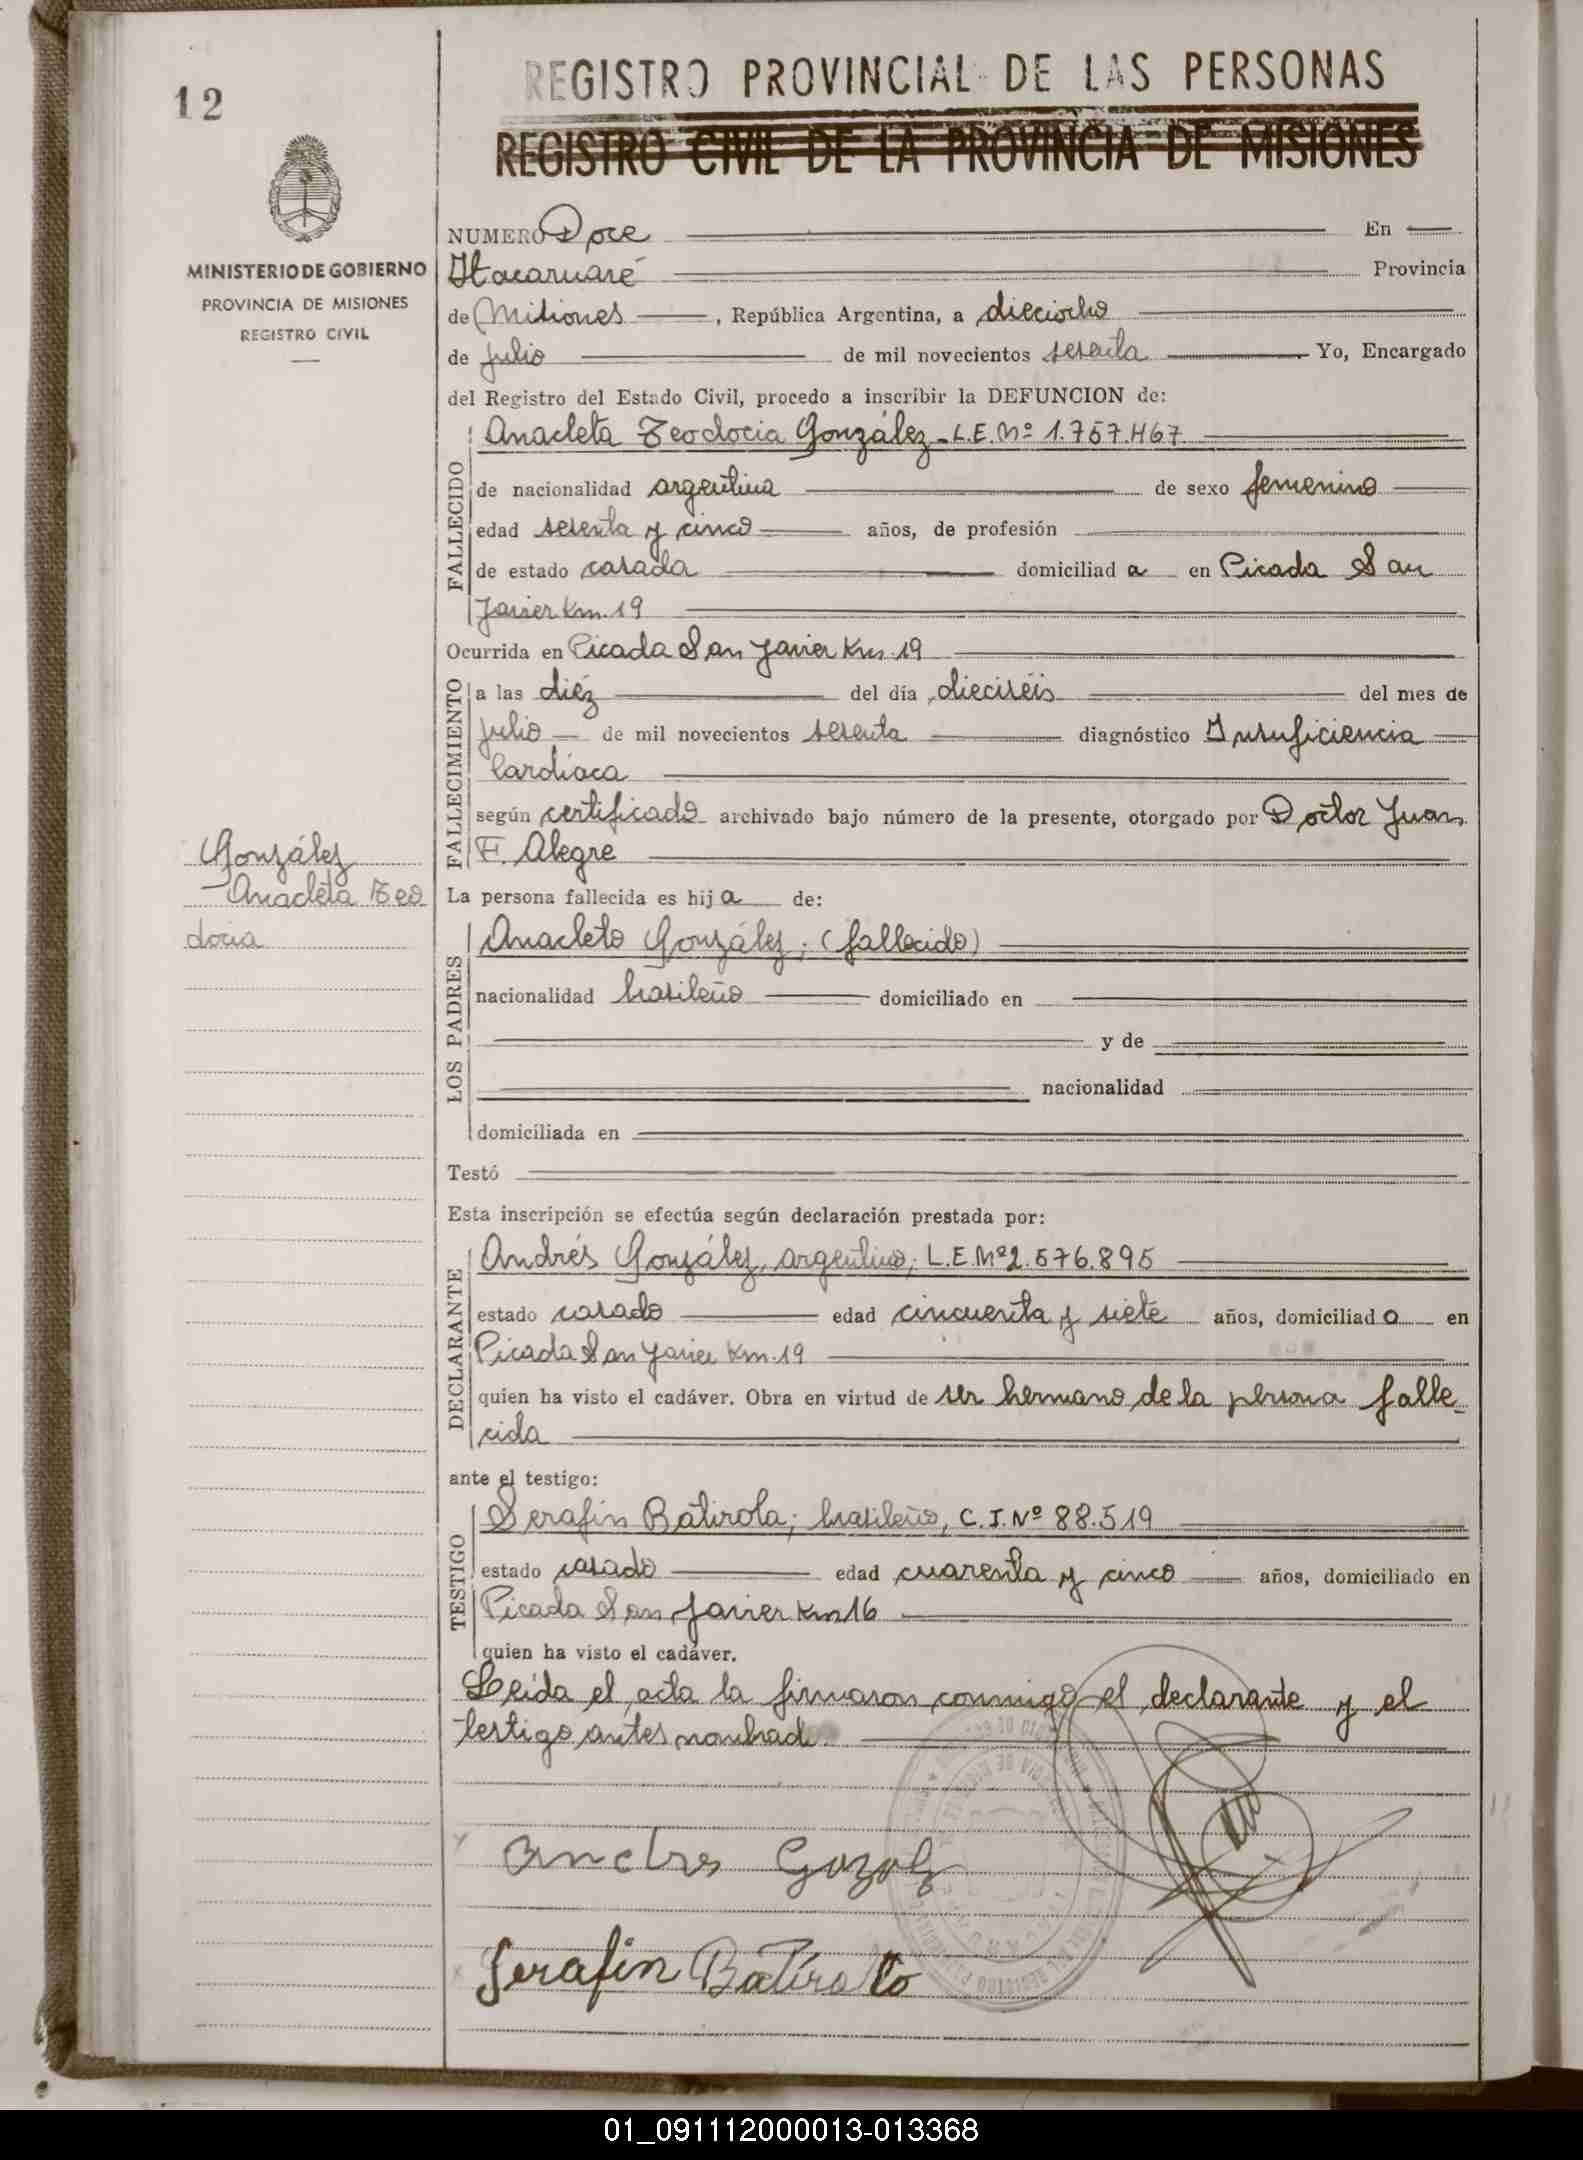 12
REGISTRO PROVINCIAL DE LAS PERSONAS
REGISTRO CIVIL DE LA PROVINCIA DE MISIONES
MINISTERIO DE GOBIERNO
PROVINCIA DE MISIONES
REGISTRO CIVIL
NUMERO Doce En
Itacaruaré Provincia
de Misiones, República Argentina, a dieciocho
de julio de mil novecientos sesenta Yo, Encargado
del Registro del Estado Civil, procedo a inscribir la DEFUNCION de:
FALLECIDO
Anacleta Teodocia González - L.E. Nº 1.757.467
de nacionalidad argentina de sexo femenino
edad sesenta y cinco años, de profesión
de estado casada domiciliad a en Picada San
Javier Km. 19
Ocurrida en Picada San Javier Km 19
FALLECIMIENTO
a las diéz del día dieciséis del mes de
julio de mil novecientos sesenta diagnóstico Insuficiencia
Cardíaca
según certificado archivado bajo número de la presente, otorgado por Doctor Juan
F. Alegre
González
Anacleta Teo
docia
La persona fallecida es hij a de:
LOS PADRES
Anacleto González; (fallecido)
nacionalidad brasileño domiciliado en
y de
nacionalidad
domiciliada en
Testó
Esta inscripción se efectúa según declaración prestada por:
DECLARANTE
Andrés González, argentino; L.E. Nº 2.576.895
estado casado edad cincuenta y siete años, domiciliad o en
Picada San Javier Km. 19
quien ha visto el cadáver. Obra en virtud de ser hermano de la persona falle-
cida
ante el testigo:
TESTIGO
Serafin Batirola; brasileño, C.I. Nº 88.519
estado casado edad cuarenta y cinco años, domiciliado en
Picada San Javier Km 16
quien ha visto el cadáver.
Leída el acta la firmaron conmigo el declarante y el
testigo antes nombrad
Andres Gozolz
Serafin Batirollo
01_091112000013-013368